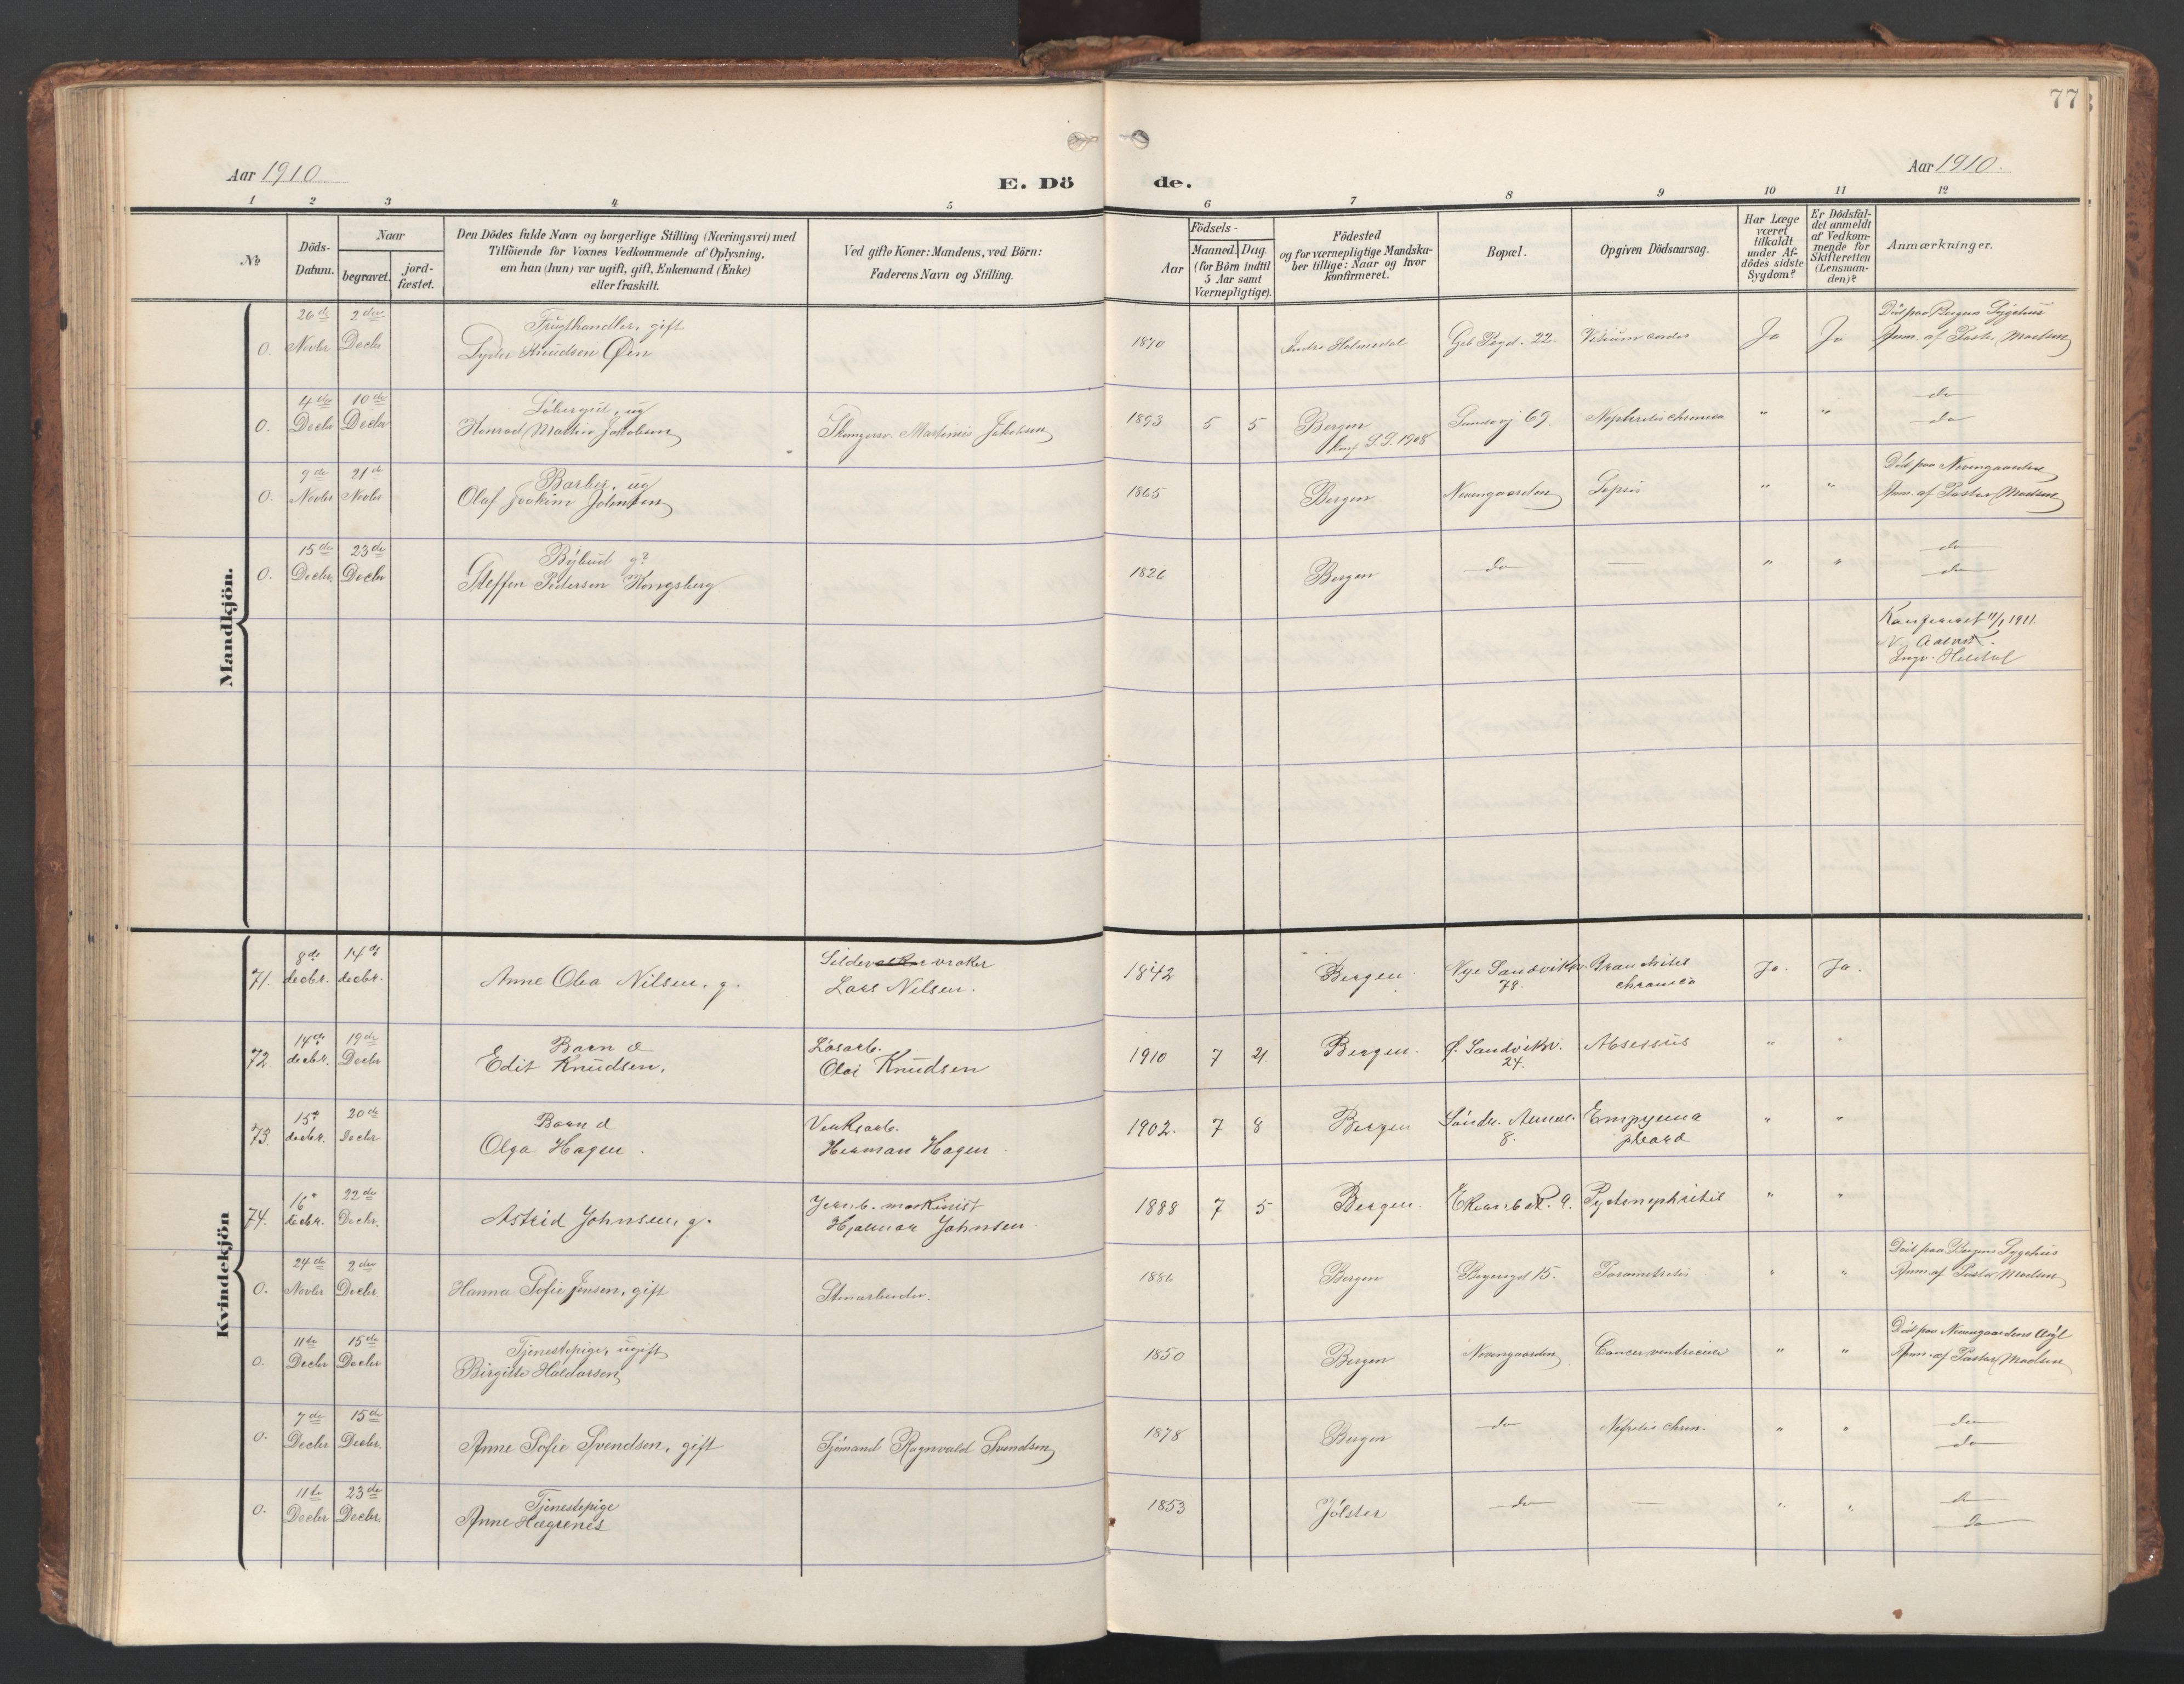 77
Aar 1910
E. Dö
de.
Aar 1910.
1 2 3 4 5 6 7 8 9 10 11 12
No
Döds-Datum.
Naar
begravet.
jord-fæstet.
Den Dödes fulde Navn og borgerlige Stilling (Næringsvei) med
Tilföiende for Voxnes Vedkommende af Oplysning,
om han (hun) var ugift, gift, Enkemand (Enke)
eller fraskilt.
Ved gifte Koner: Mandens, ved Börn:
Faderens Navn og Stilling.
Födsels-
Aar
Maaned. Dag.
(for Börn indtil
5 Aar samt
Værnepligtige).
Födested
og for værnepligtige Mandska-
ber tillige: Naar og hvor
konfirmeret.
Bopæl.
Opgiven Dödsaarsag.
Har Læge
været
tilkaldt
under Af-
dödes sidste
Sygdom?
Er Dödsfal-
det anmeldt
af Vedkom-
mende for
Skifteretten
(Lensman-
den)?
Anmærkninger.
Mandkjön.
0. 26de Novbr 2den Decbr Frugthandler, gift 1870 Indre Holmedal 22. Vitium cordis Ja Ja Död paa Bergens Sygehus
Knudsen Öen Anm. af Pastor Madsen
0. 4de Decbr 10de Decbr ug Martinus Jakobsen 1893 5 5 Bergen 69. chronica " " do
Konrad Martin Jakobsen Konf. 1908 do
0. 9de Novbr 21de Novbr Barber, ug 1865 Bergen Nevengaarden Sepsis " " Död paa Nevengaarden
Olaf Joakim Johnsen Anm. af Pastor Madsen
0. 15de Decbr. 23de Decbr Bybud g? 1826 Bergen do — " " do
Steffen Pedersen Kongsberg do
Konfereret 11/1 1911.
Kvindekjön
71. 8de decbr. 14de decbr. Anne Olea Nilsen, g. Silde vraker 1842 Bergen. Nye Sandviksv. Bronchitis Ja. Ja.
Lars Nilsen. 78. chronica
72. 14de decbr. 19de Decbr Barn d Løsarb. 1910 7 21. Bergen. Ø. Sandviksv. Absessus " "
Edit Knudsen. Olai Knudsen 24.
73. 15de decbr. 20de Decbr Barn d Verksarb. 1902. 7 8 Bergen Søndre 8. Empyema " "
Olga Hagen. Herman Hagen
74. 16 decbr. 22de Decbr. Astrid Johnsen, g. Jernb. maskinist 1888 7 5 Bergen. Pyelonephritis " "
Hjalmar Johnsen
0. 24de Novbr 2den Decbr Hanna Sofie Jensen, gift Stenarbeider. 1886 Bergen 15. Parametritis " " Död paa Bergens Sygehus
Anm. af Pastor Madsen
0. 11te Decbr 15de Decbr Tjenestepige, ugift 1850 Bergen Nevengaarden Cancer ventriculi " " Död paa Nevengaardens Asyl
Birgitte Haldorsen Anm. af Pastor Madsen
0. 7de Decbr 15de Decbr. Anne Sofie Svendsen, gift Sjömand Ragnvald Svendsen 1878 Bergen do Nefritis chron. " " do
do
0. 11te Decbr 23de Decbr. Tjenestepige 1853 Jölster do — " " do
Anne Hægrenes do